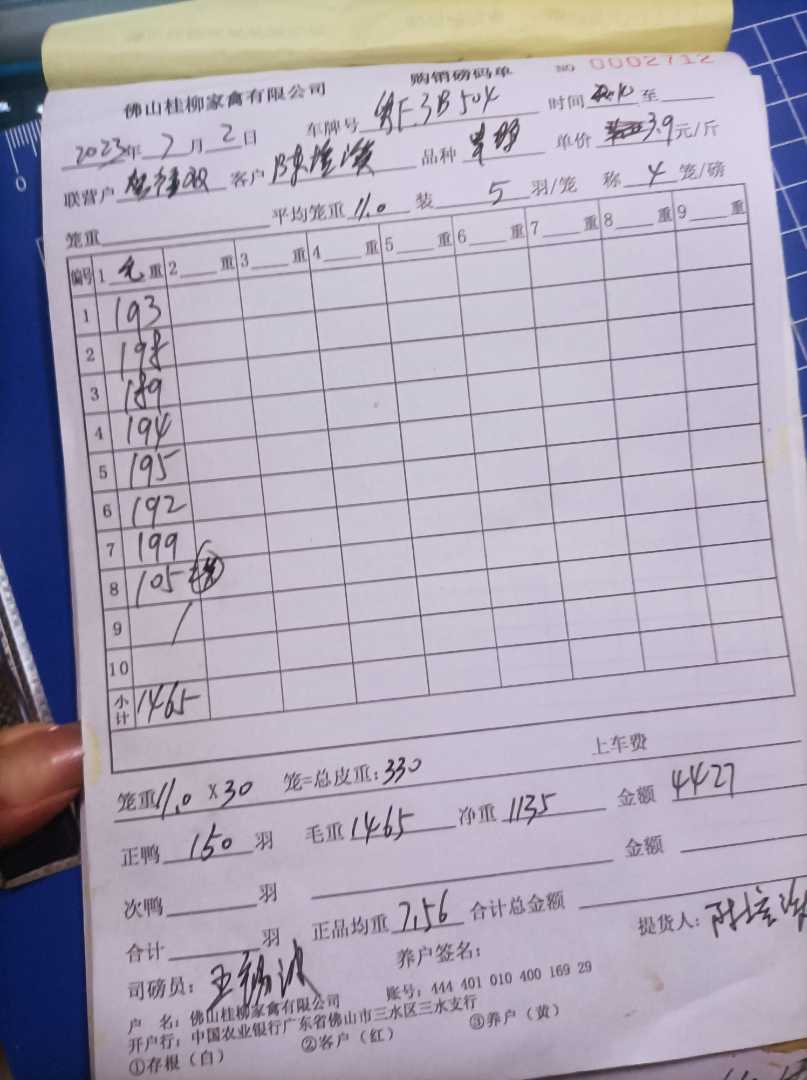 佛山桂柳家禽有限公司 购销磅码单 NO 0002712
2023年 7月 2日 车牌号 粤F.3B504 时间 至
联营户 客户 陈 品种 单价 3.9元/斤
笼重 平均笼重 11.0 装 5 羽/笼 称 4 笼/磅
编号 1 毛 重 2 重 3 重 4 重 5 重 6 重 7 重 8 重 9 重
1 193
2 198
3 189
4 194
5 195
6 192
7 199
8 105
9 /
10
小计 1465
上车费
笼重11.0 X30 笼=总皮重:330
正鸭 150 羽 毛重 1465 净重 1135 金额 4427
次鸭 羽 金额
合计 羽 正品均重 7.56 合计总金额
司磅员: 王锡波 养户签名: 提货人:
户 名: 佛山桂柳家禽有限公司 账号: 444 401 010 400 169 29
开户行: 中国农业银行广东省佛山市三水区三水支行
①存根（白） ②客户（红） ③养户（黄）